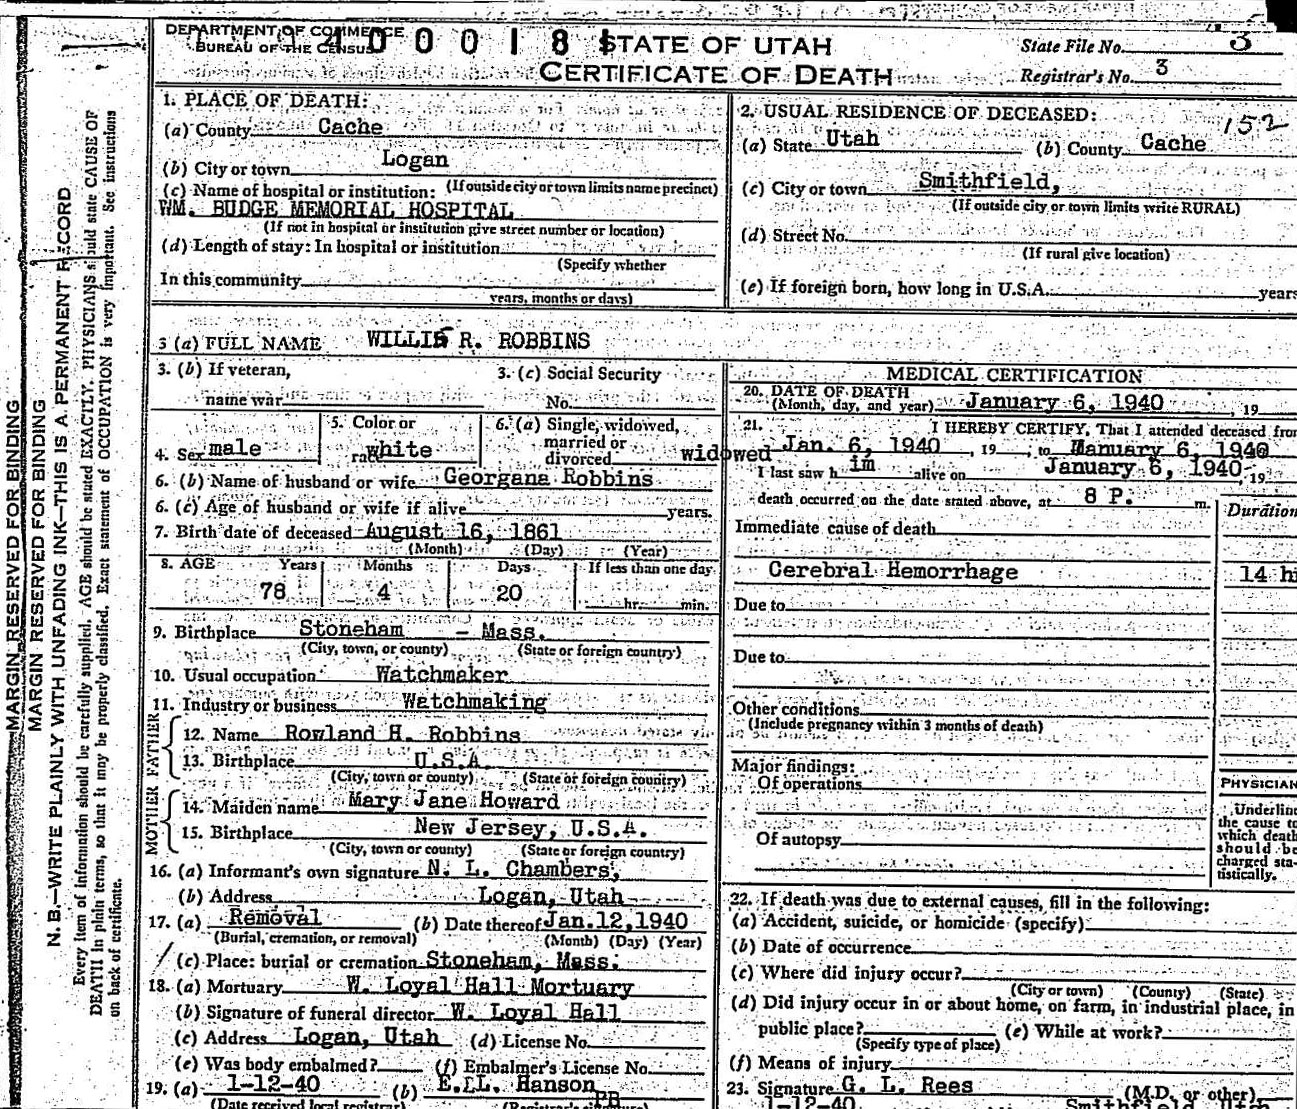 DEPARTMENT OF COMMERCE
BUREAU OF THE CENSUS
STATE OF UTAH
CERTIFICATE OF DEATH
State File No. 3
Registrar's No. 3
MARGIN RESERVED FOR BINDING
MARGIN RESERVED FOR BINDING
N. B.—WRITE PLAINLY WITH UNFADING INK—THIS IS A PERMANENT RECORD
Every item of information should be carefully supplied. AGE should be stated EXACTLY. PHYSICIANS should state CAUSE OF
DEATH in plain terms, so that it may be properly classified. Exact statement of OCCUPATION is very important. See instructions
on back of certificate.
1. PLACE OF DEATH:
(a) County Cache
(b) City or town Logan
(c) Name of hospital or institution: (If outside city or town limits name precinct)
WM. BUDGE MEMORIAL HOSPITAL
(If not in hospital or institution give street number or location)
(d) Length of stay: In hospital or institution
(Specify whether
In this community
years, months or days)
2. USUAL RESIDENCE OF DECEASED:
152
(a) State Utah (b) County Cache
(c) City or town Smithfield,
(If outside city or town limits write RURAL)
(d) Street No.
(If rural give location)
(e) If foreign born, how long in U.S.A. years
3 (a) FULL NAME WILLIS R. ROBBINS
3. (b) If veteran,
name war
3. (c) Social Security
No.
4. Sex male
5. Color or
race white
6. (a) Single, widowed,
married or
divorced widowed
6. (b) Name of husband or wife Georgana Robbins
6. (c) Age of husband or wife if alive years.
7. Birth date of deceased August 16, 1861
(Month) (Day) (Year)
8. AGE Years Months Days If less than one day
78 4 20 hr. min.
9. Birthplace Stoneham - Mass.
(City, town, or county) (State or foreign country)
10. Usual occupation Watchmaker
11. Industry or business Watchmaking
FATHER
12. Name Rowland H. Robbins
13. Birthplace U.S.A.
(City, town or county) (State or foreign country)
MOTHER
14. Maiden name Mary Jane Howard
15. Birthplace New Jersey, U.S.A.
(City, town or county) (State or foreign country)
16. (a) Informant's own signature N. L. Chambers,
(b) Address Logan, Utah
17. (a) Removal (b) Date thereof Jan.12,1940
(Burial, cremation, or removal) (Month) (Day) (Year)
(c) Place: burial or cremation Stoneham, Mass.
18. (a) Mortuary W. Loyal Hall Mortuary
(b) Signature of funeral director W. Loyal Hall
(c) Address Logan, Utah (d) License No.
(e) Was body embalmed? (f) Embalmer's License No.
19. (a) 1-12-40 (b) E.L. Hanson
PR
(Date received local registrar)
MEDICAL CERTIFICATION
20. DATE OF DEATH
(Month, day, and year) January 6, 1940, 19
21. I HEREBY CERTIFY, That I attended deceased from
Jan. 6, 1940, 19 ; to January 6, 1940
I last saw h im alive on January 6, 1940, 19
death occurred on the date stated above, at 8 P. m.
Duration
Immediate cause of death
Cerebral Hemorrhage 14 h
Due to
Due to
Other conditions
(Include pregnancy within 3 months of death)
Major findings:
Of operations
Of autopsy
PHYSICIAN
Underline
the cause to
which death
should be
charged sta-
tistically.
22. If death was due to external causes, fill in the following:
(a) Accident, suicide, or homicide (specify)
(b) Date of occurrence
(c) Where did injury occur?
(City or town) (County) (State)
(d) Did injury occur in or about home, on farm, in industrial place, in
public place? (e) While at work?
(Specify type of place)
(f) Means of injury
23. Signature G. L. Rees (M.D. or other)
1-12-40 Smithfield